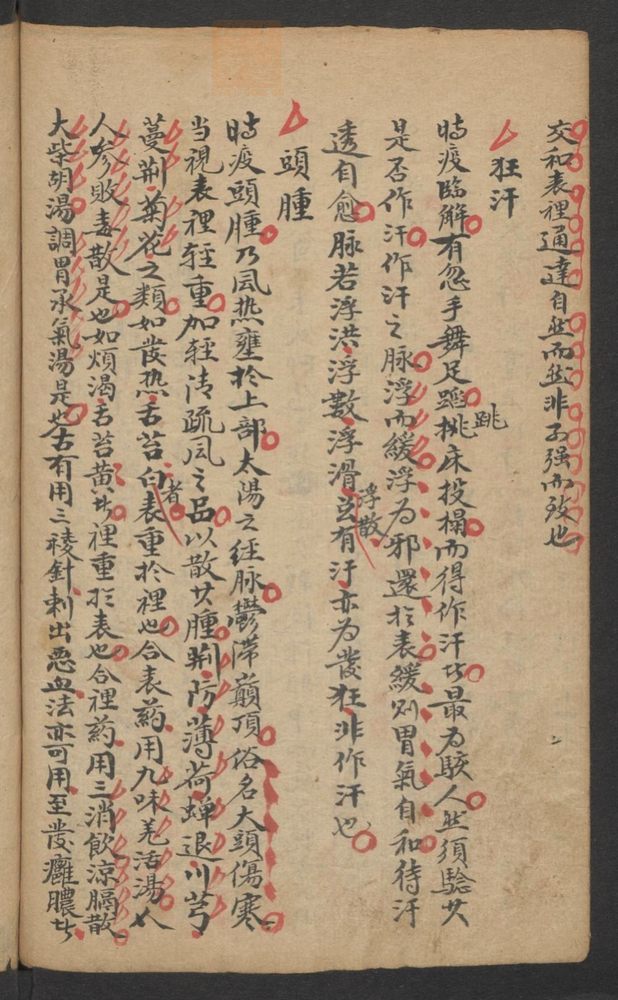 交和表裡通達自然而然非可强而致也
狂汗
時疫臨解有忽手舞足蹈跳床投榻而得作汗者最為駭人然須驗其
是否作汗作汗之脉浮而緩浮為邪還於表緩則胃氣自和待汗
透自愈脉若浮洪浮數浮滑浮散豈有汗亦為發狂非作汗也
頭腫
時疫頭腫乃風热壅於上部太陽之經脉鬱滯巔頂俗名大頭傷寒
当視表裡轻重加轻清疏風之品以散其腫荆防薄荷蝉退川芎
蔓荆菊花之類如發热舌苔白者表重於裡也合表药用九味羌活湯人
人參敗毒散是也如煩渴舌苔黄者裡重於表也合裡药用三消飲涼膈散
大柴胡湯調胃承氣湯是也古有用三稜針刺出恶血法亦可用至發癰膿者